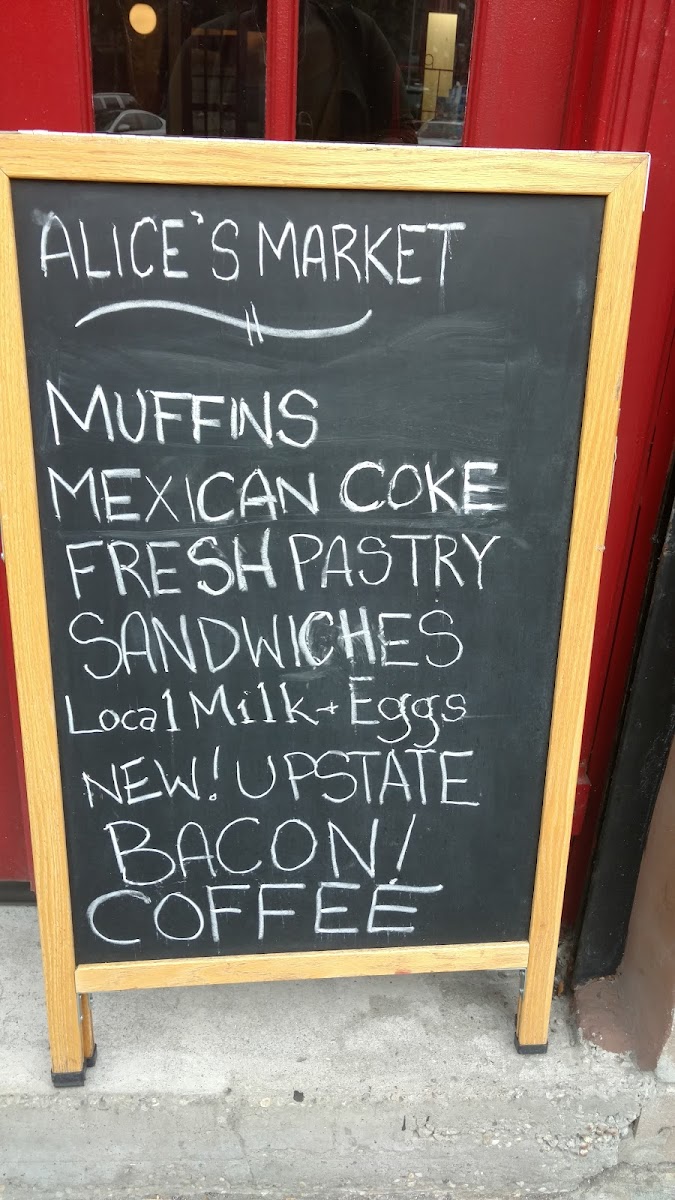 ALICE'S MARKET
MUFFINS
MEXICAN COKE
FRESH PASTRY
SANDWICHES
Local Milk + Eggs
NEW! UPSTATE
BACON!
COFFEE